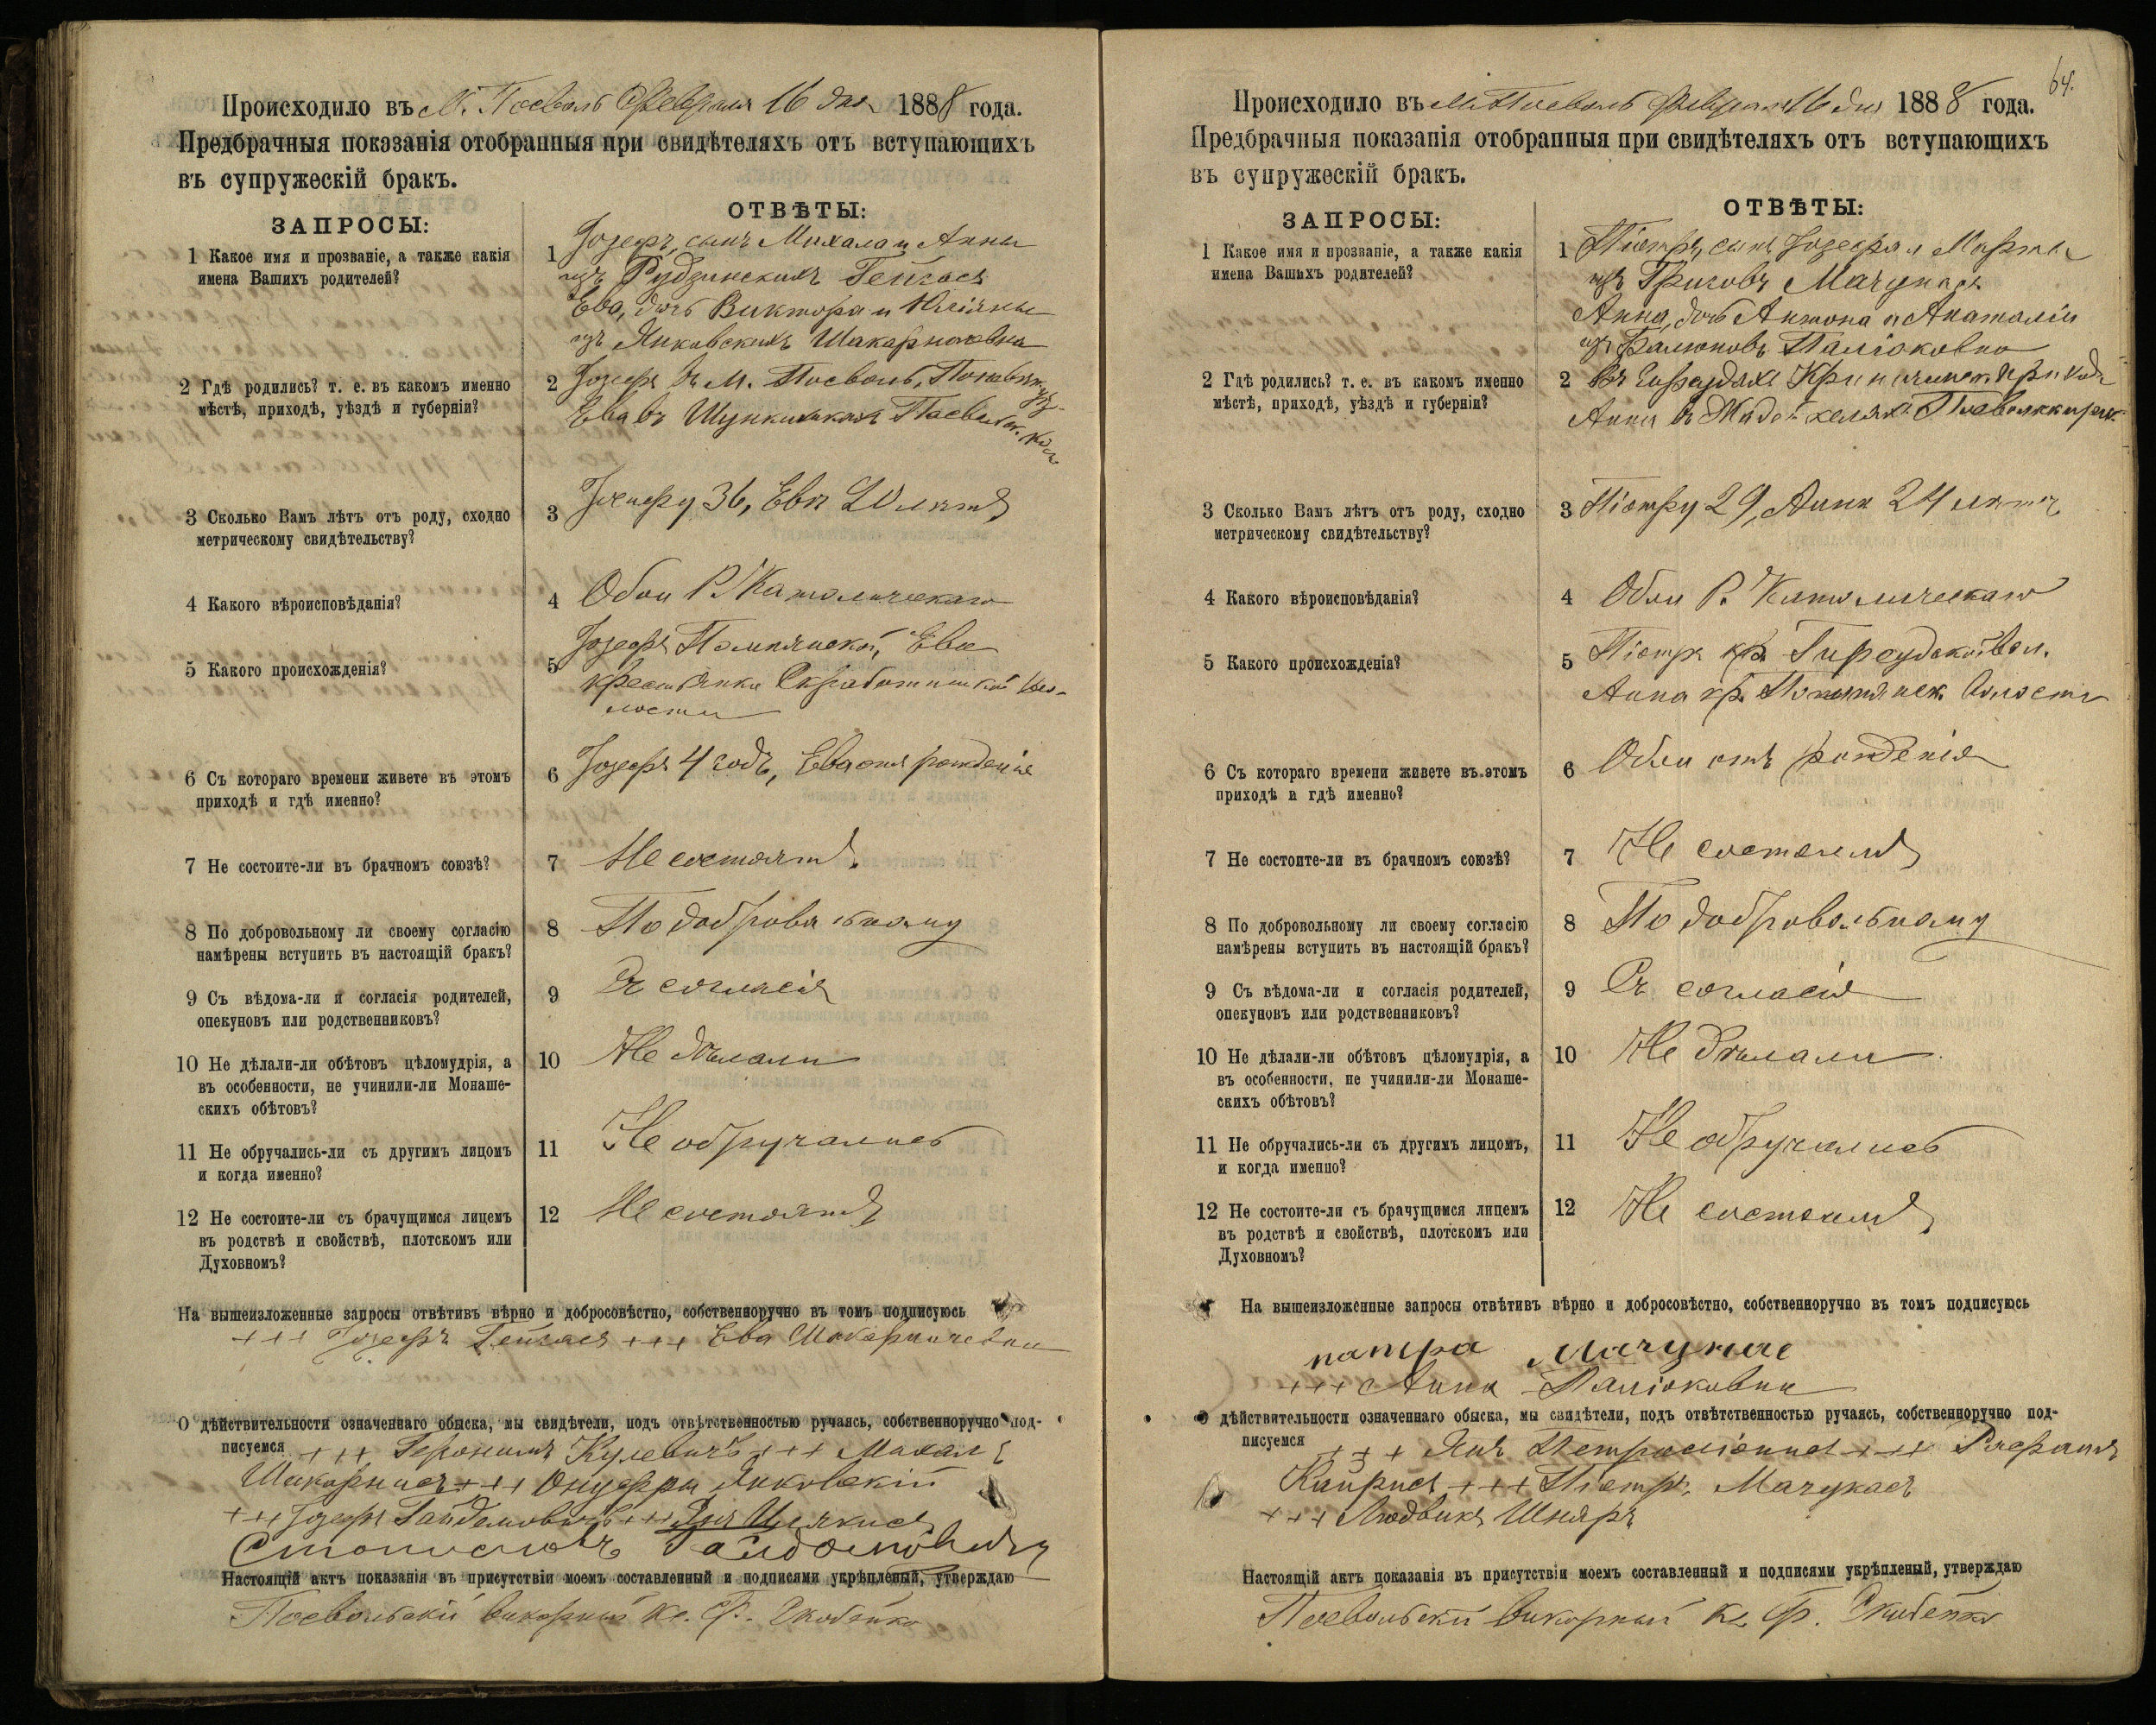 Происходило въ М. Посволь Февраля 16 дня 1888 года.
Предбрачныя показанія отобранныя при свидѣтеляхъ отъ вступающихъ
въ супружескій бракъ.
ЗАПРОСЫ:
ОТВѢТЫ:
1 Какое имя и прозваніе, а также какія
имена Вашихъ родителей?
1 Іозефъ, сынъ Михала и Анны
изъ Рудзинскихъ
Ева, дочь Виктора и Юліяны
изъ Янковскихъ
2 Гдѣ родились? т. е. въ какомъ именно
мѣстѣ, приходѣ, уѣздѣ и губерніи?
2 Іозефъ въ М. Посволь,
Ева въ
3 Сколько Вамъ лѣтъ отъ роду, сходно
метрическому свидѣтельству?
3 Іозефу 36, Евѣ 20 лѣтъ
4 Какого вѣроисповѣданія?
4 Обои Р. Католическаго
5 Какого происхожденія?
5 Іозефъ Помпянской, Ева
крестьянка Скработишкой Во-
лости
6 Съ котораго времени живете въ этомъ
приходѣ и гдѣ именно?
6 Іозефъ 4 годъ, Ева отъ рожденія
7 Не состоите-ли въ брачномъ союзѣ?
7 Не состоятъ
8 По добровольному ли своему согласію
намѣрены вступить въ настоящій бракъ?
8 По добровольному
9 Съ вѣдома-ли и согласія родителей,
опекуновъ или родственниковъ?
9 Съ согласія
10 Не дѣлали-ли обѣтовъ цѣломудрія, а
въ особенности, не учинили-ли Монаше-
скихъ обѣтовъ?
10 Не дѣлали
11 Не обручались-ли съ другимъ лицомъ
и когда именно?
11 Не обручались
12 Не состоите-ли съ брачущимся лицемъ
въ родствѣ и свойствѣ, плотскомъ или
Духовномъ?
12 Не состоятъ
На вышеизложенные запросы отвѣтивъ вѣрно и добросовѣстно, собственноручно въ томъ подписуюсь
+++ Іозефъ +++ Ева
О дѣйствительности означеннаго обыска, мы свидѣтели, подъ отвѣтственностью ручаясь, собственноручно под-
писуемся +++ Геронимъ Кулевичъ +++ Михалъ
+++ Онуфры Янковскій
+++ Іозефъ Гайдамовичъ +++ Янъ
Станиславъ
Настоящій актъ показанія въ присутствіи моемъ составленный и подписями укрѣпленый, утверждаю
Посвольскій викарный Кс. Ф. Скабейко
64.
Происходило въ М. Посволь Февраля 16 дня 1888 года.
Предбрачныя показанія отобранныя при свидѣтеляхъ отъ вступающихъ
въ супружескій бракъ.
ЗАПРОСЫ:
ОТВѢТЫ:
1 Какое имя и прозваніе, а также какія
имена Вашихъ родителей?
1 Піотръ, сынъ Іозефа и Марты
изъ Григовъ Мачукасъ
Анна, дочь Антона и Анаталіи
изъ Балюновъ Паліоковна
2 Гдѣ родились? т. е. въ какомъ именно
мѣстѣ, приходѣ, уѣздѣ и губерніи?
2 прихода
Анна въ
3 Сколько Вамъ лѣтъ отъ роду, сходно
метрическому свидѣтельству?
3 Піотру 29, Аннѣ 24 лѣтъ
4 Какого вѣроисповѣданія?
4 Обои Р. Католическаго
5 Какого происхожденія?
5 Піотръ кр. Вол.
Анна кр. Помпянск. Волости
6 Съ котораго времени живете въ этомъ
приходѣ и гдѣ именно?
6 Обои отъ рожденія
7 Не состоите-ли въ брачномъ союзѣ?
7 Не состоятъ
8 По добровольному ли своему согласію
намѣрены вступить въ настоящій бракъ?
8 По добровольному
9 Съ вѣдома-ли и согласія родителей,
опекуновъ или родственниковъ?
9 Съ согласія
10 Не дѣлали-ли обѣтовъ цѣломудрія, а
въ особенности, не учинили-ли Монаше-
скихъ обѣтовъ?
10 Не дѣлали
11 Не обручались-ли съ другимъ лицомъ,
и когда именно?
11 Не обручались
12 Не состоите-ли съ брачущимся лицемъ
въ родствѣ и свойствѣ, плотскомъ или
Духовномъ?
12 Не состоятъ
На вышеизложенные запросы отвѣтивъ вѣрно и добросовѣстно, собственноручно въ томъ подписуюсь
патра Мачукас
+++ Анна Паліоковна
О дѣйствительности означеннаго обыска, мы свидѣтели, подъ отвѣтственностью ручаясь, собственноручно под-
писуемся +++ Янъ +++ Рафаилъ
+++ Піотръ Мачукасъ
+++ Людвикъ
Настоящій актъ показанія въ присутствіи моемъ составленный и подписями укрѣпленый, утверждаю
Посвольскій викарный Кс. Ф. Скабейко